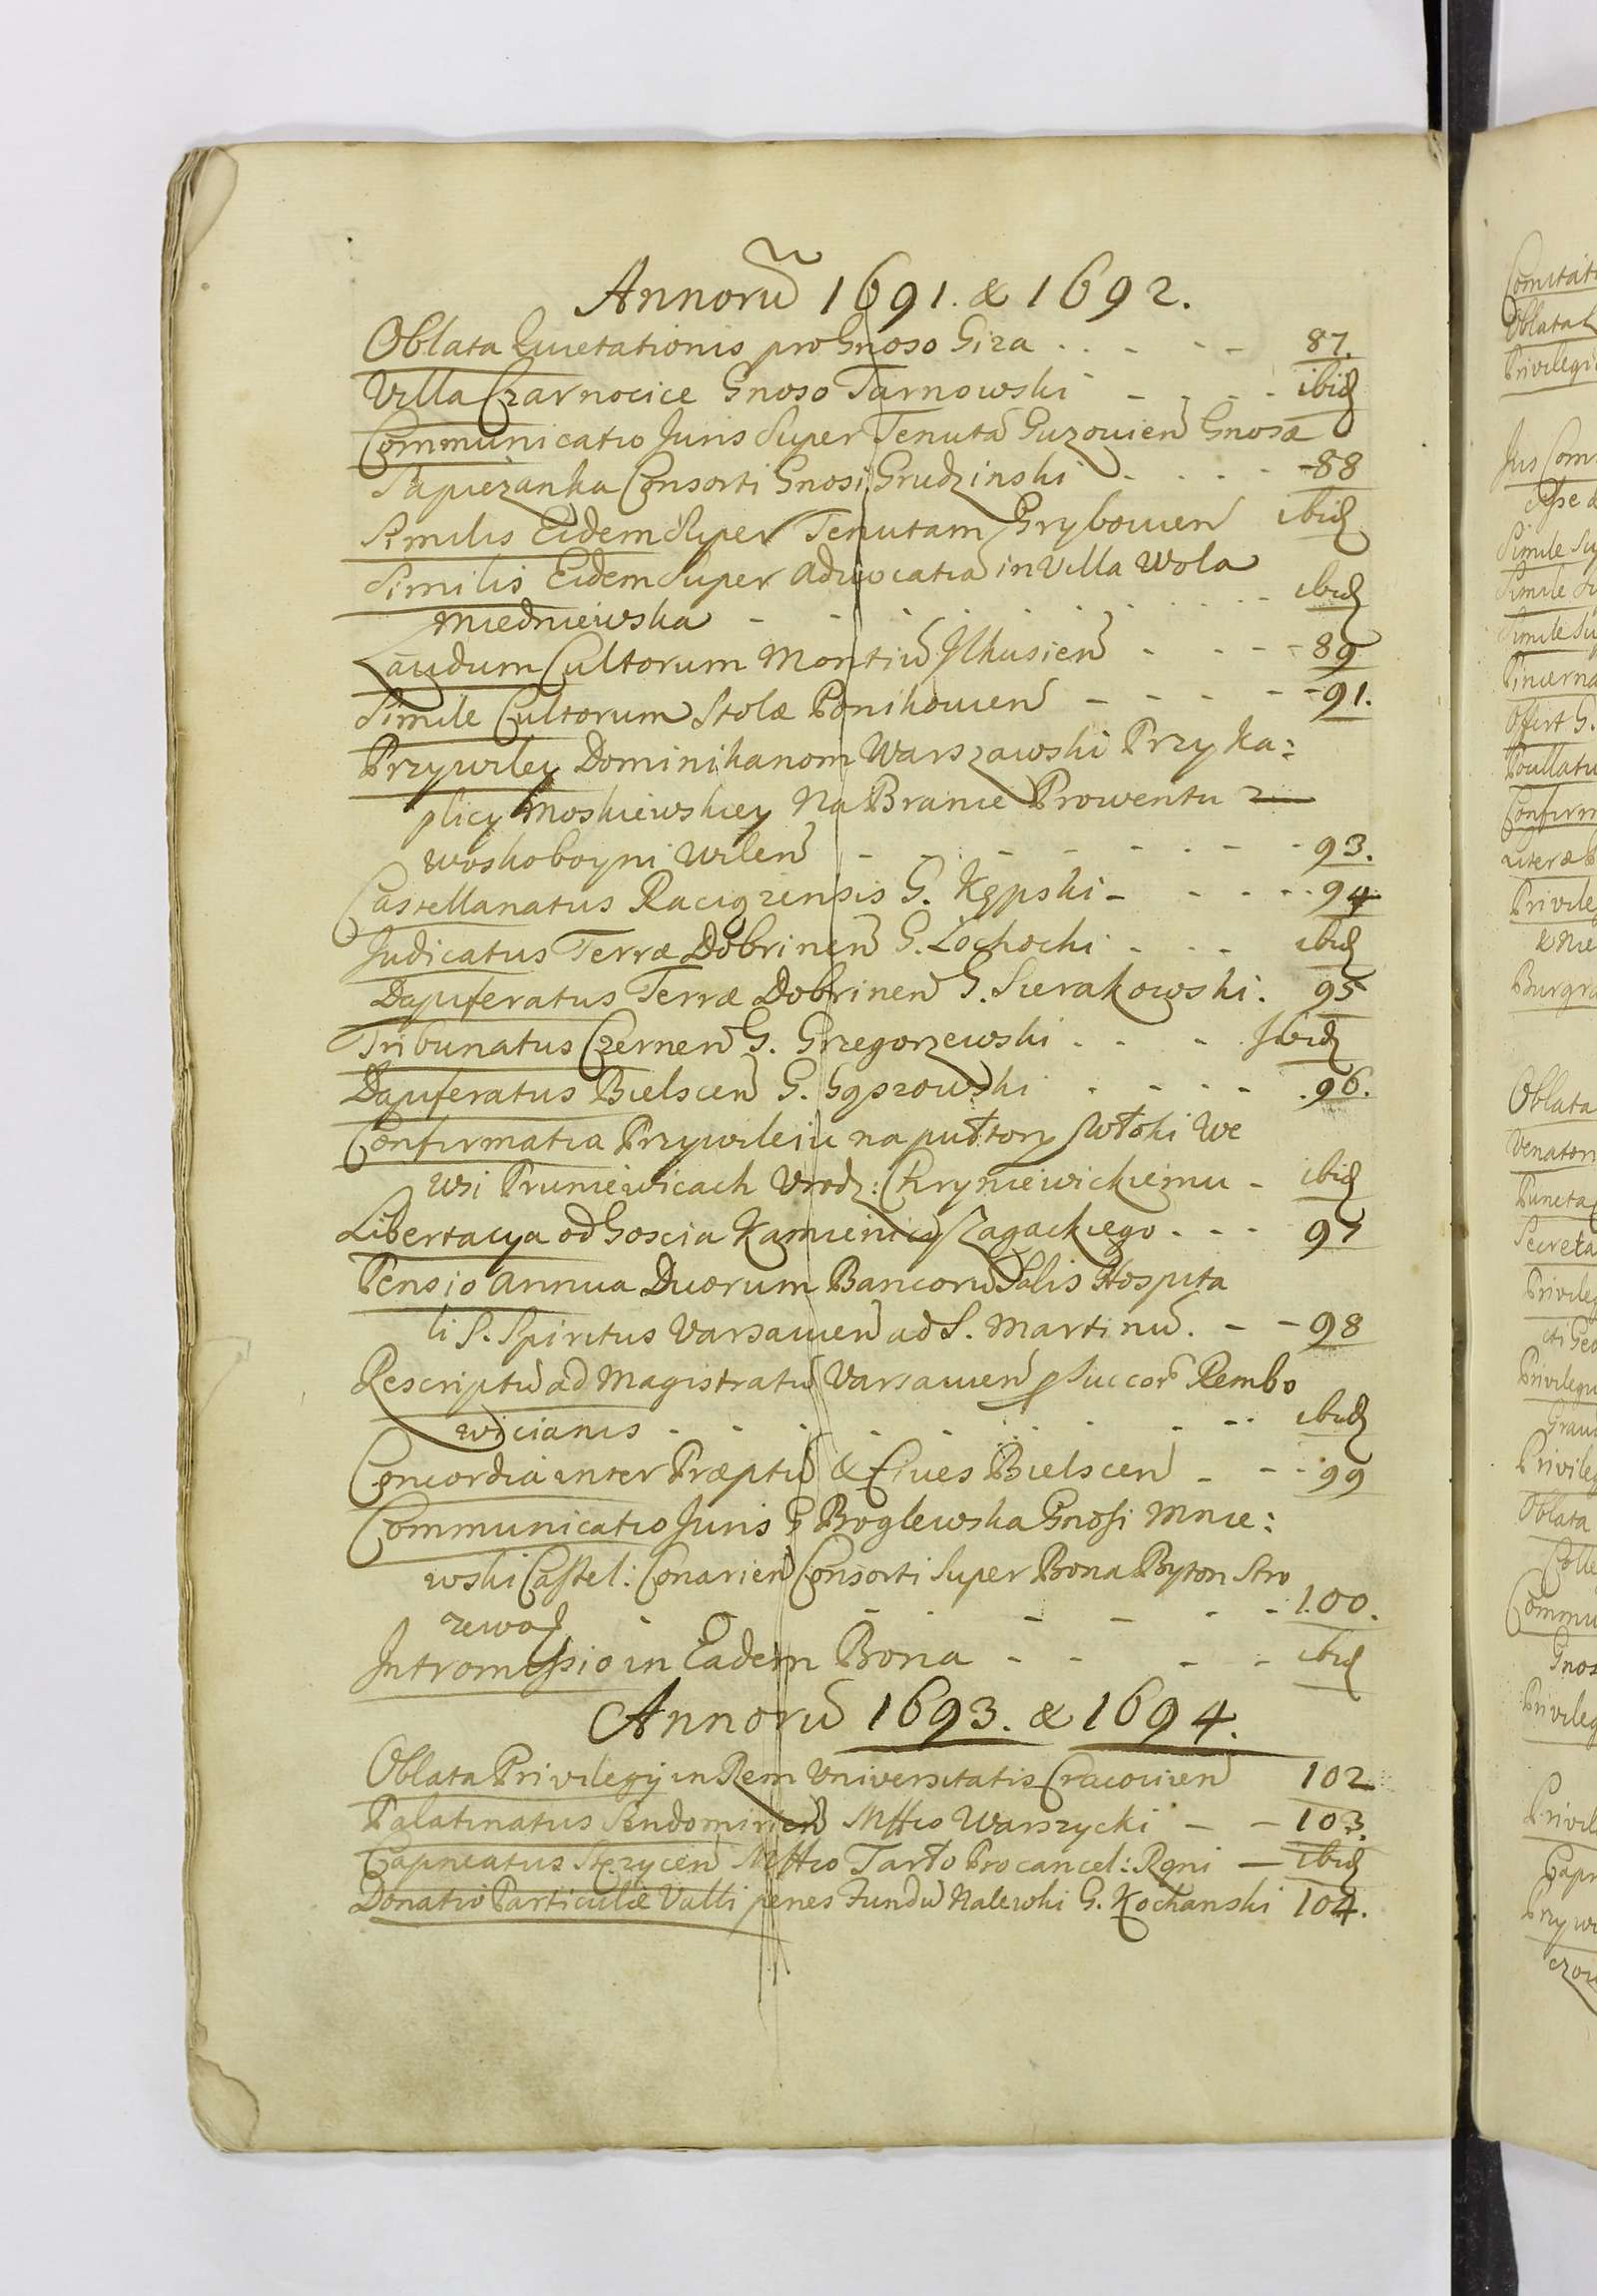 Annorũ 1691. & 1692.
Oblata Quietationis pro Gnoso Giza . . - - - 87.
Villa Czarnocice Gnoso Tarnowski - - - - ibid
Communicatio Juris Super Tenutã Guzovien Gnosæ
Sapiezanka Consorti Gnosi Grudzinski - - - - 88
Similis Eidem Super Tenutam Grybovien ibid
Similis Eidem Super Advocatiã in Villa Wola
Miedniewska - - - - - - - ibid
Laudum Cultorum Montiũ Ilkusien - - - - 89
Simile Cultorum Stolæ Ponikovien - - - - - 91.
Przywiley Dominikanom Warszawski Przy Ka:
plicy Moskiewskiey Na Branie Prowentu z
woskoboyni Wilen - - - - - - - 93.
Castellanatus Raciązensis G. Kępski - - - - 94
Judicatus Terræ Dobrinen G. Łochocki - - - ibid
Dapiferatus Terræ Dobrinen G. Sierakowski. 95
Tribunatus Czernen G. Grzegorzewski - - - Ibid
Dapiferatus Bielscen G. Gąszowski - - - - 96.
Confirmatia Przywileiu na pułtory Włoki We
Wsi Pruniewicach Urodz: Chryniewickiemu - ibid
Libertacya od Goscia Kamienicy Zagackiego - - - 97
Pensio Annua Duorum Bancorũ Salis Hospita
li S. Spiritus Varsavien ad S. Martinũ. - - 98
Rescriptũ ad Magistratũ Varsavien p Succor Rembo
wicianis - - - - - - - ibid
Concordia inter Præptũ & Cives Bielscen - - - 99
Communicatio Juris G Boglewska Gnosi Mnie:
wski Castel: Conarien Consorti Super Bona Byton Stro
zewo - - - - - - - 100.
Intromissio in Eadem Bona - - - - ibid
Annorũ 1693. & 1694.
Oblata Privilegij in Rem Universitatis Cracovien 102
Palatinatus Sendomirien Mffco Warszycki - - 103.
Capneatus Stęzycen Mffco Tarło Procancel: Rgni - ibid
Donatio Particulæ Valli penes Fundũ Nalewki G. Kochanski 104.